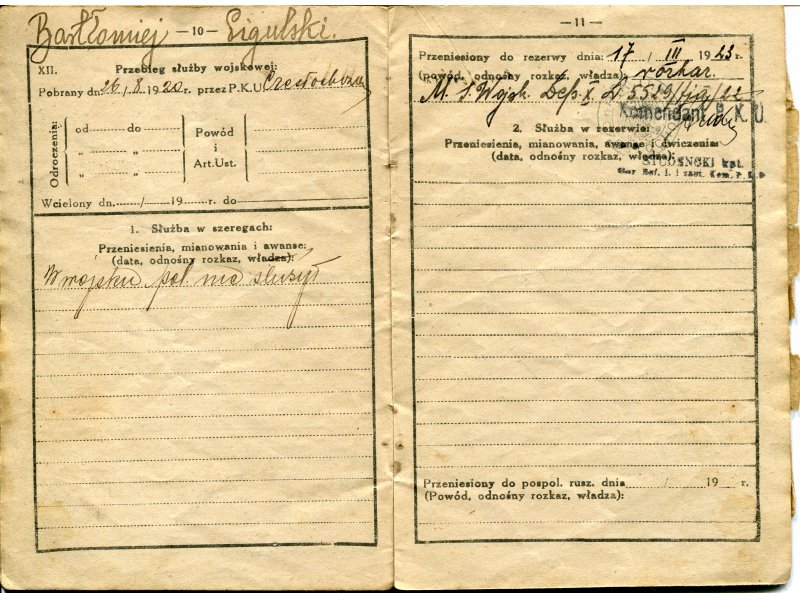 Bartłomiej — 10 — Ligulski.
XII. Przebieg służby wojskowej:
Pobrany dn. 26/8 1920 r. przez P.K.U Częstochowa
Odroczenia: od do Powód
„ „ i
„ „ Art.Ust.
Wcielony dn. / 19 r. do
1. Służba w szeregach:
Przeniesienia, mianowania i awanse:
(data, odnośny rozkaz, władza):
W wojsku pol. nie służył
— 11 —
Przeniesiony do rezerwy dnia: 17 / III 1923 r.
(powód, odnośny rozkaz, władza): rozkaz.
M. S. Wojsk. Dep. X L 5519
Komendant P. K. U.
2. Służba w rezerwie:
Przeniesienia, mianowania, awanse i ćwiczenia:
(data, odnośny rozkaz, władza):
kpt.
Kier. Ref. I. i zast. Kom. P. K. U
Przeniesiony do pospol. rusz. dnia / 19 r.
(Powód, odnośny rozkaz, władza):